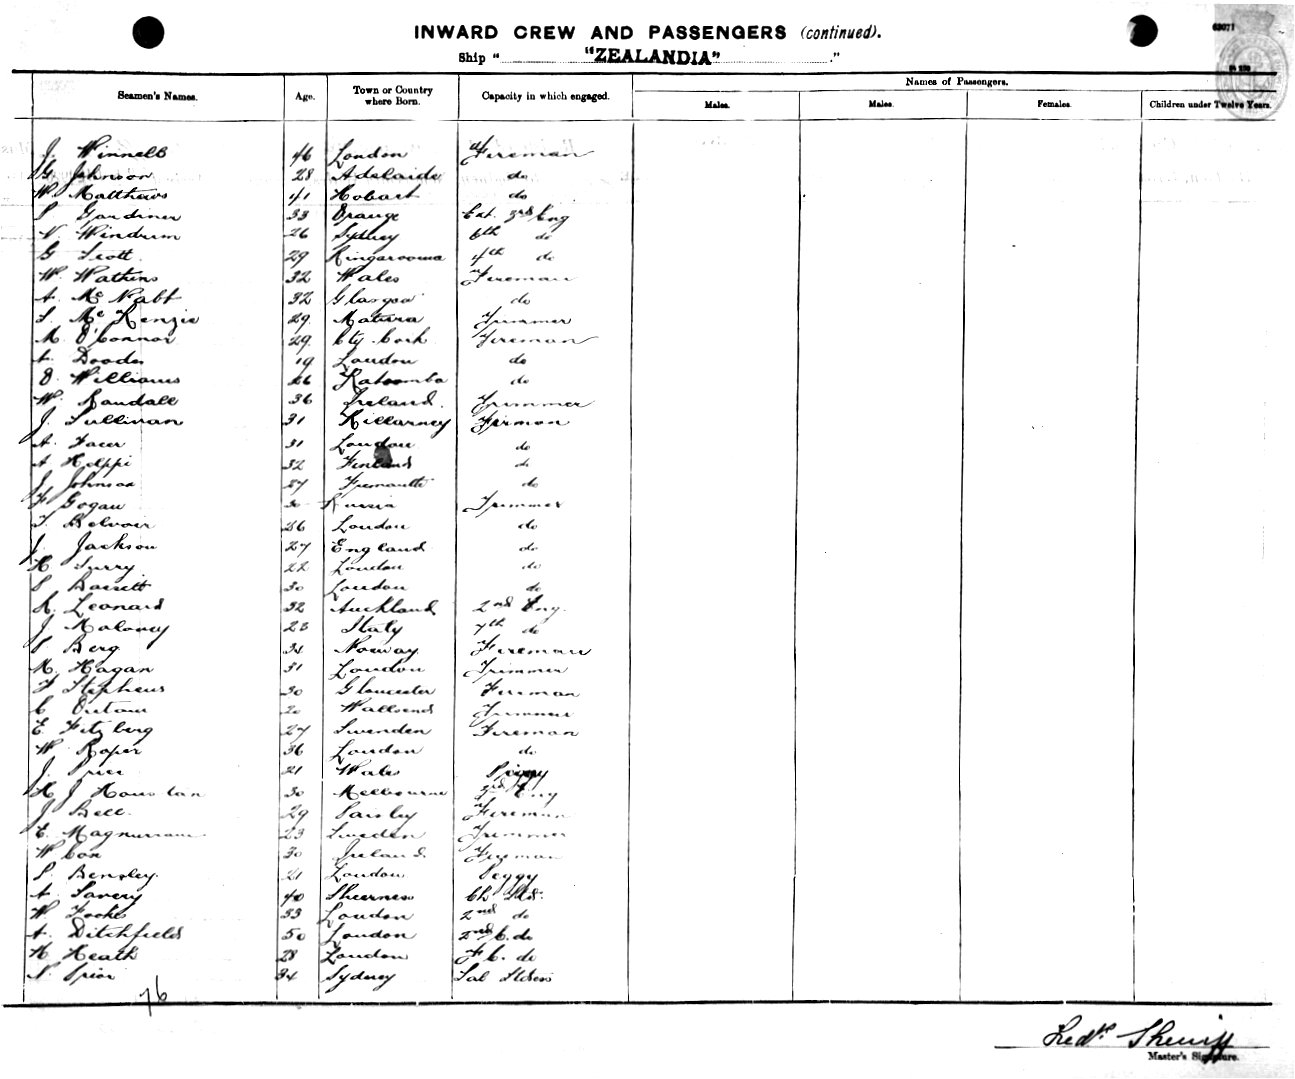 INWARD CREW AND PASSENGERS (continued).
Ship "ZEALANDIA"
63071
Seamen's Names. Age. Town or Country where Born. Capacity in which engaged. Names of Passengers.
Males. Males. Females. Children under Twelve Years.
J. Winnell 46 London Fireman
G Johnson 28 Adelaide do
W. Matthews 41 Hobart do
S Gardiner 33 Orange Ext. 3rd Eng
V. Windrum 26 Sydney 6th do
G Scott 29 Ringarooma 4th do
W. Watkins 32 Wales Fireman
A. McNabt 32 Glasgow do
S. McKenzie 29. Trimmer
M. O'Connor 29. Cty Cork Fireman
A. 19 London do
O. Williams 26 Katoomba do
W. Randall 36 Ireland. Trimmer
J. Sullivan 31 Killarney Firmon
A. Facer 31 London do
A Helppi 32 Finland do
J Johnson 27 Fremantle do
F Gogan 30 Russia Trimmer
T. Belvoir 26 London do
J. Jackson 27 England do
H. Surry 22 London do
S Bassett 30 London do
R. Leonard 32 Auckland 2nd Eng.
J Maloney 23 Italy 7th do
S Berg 34 Norway Fireman
M. Hagan 31 London Trimmer
F Stephens 30 Gloucester Fireman
C 20 Wallsend Trimmer
E Fitzberg 27 Swenden Fireman
W. Roper 36 London do
J. Price 21 Wales
H J Houstan 30 Melbourne 3rd Eng
J Bell 29 Paisley Fireman
E. 23 Sweden Trimmer
W Cox 30 Ireland. Fireman
S. Bensley. 21 London Peggy
A. Savery 40 Sheerness Ch Std.
W. Fooks 33 London 2nd do
A. Ditchfield 50 London 2nd C. do
H Heath 28 London F C. do
N. Prior 34 Sydney Sal Stdess
76
Fredk. Sheriff
Master's Signature.